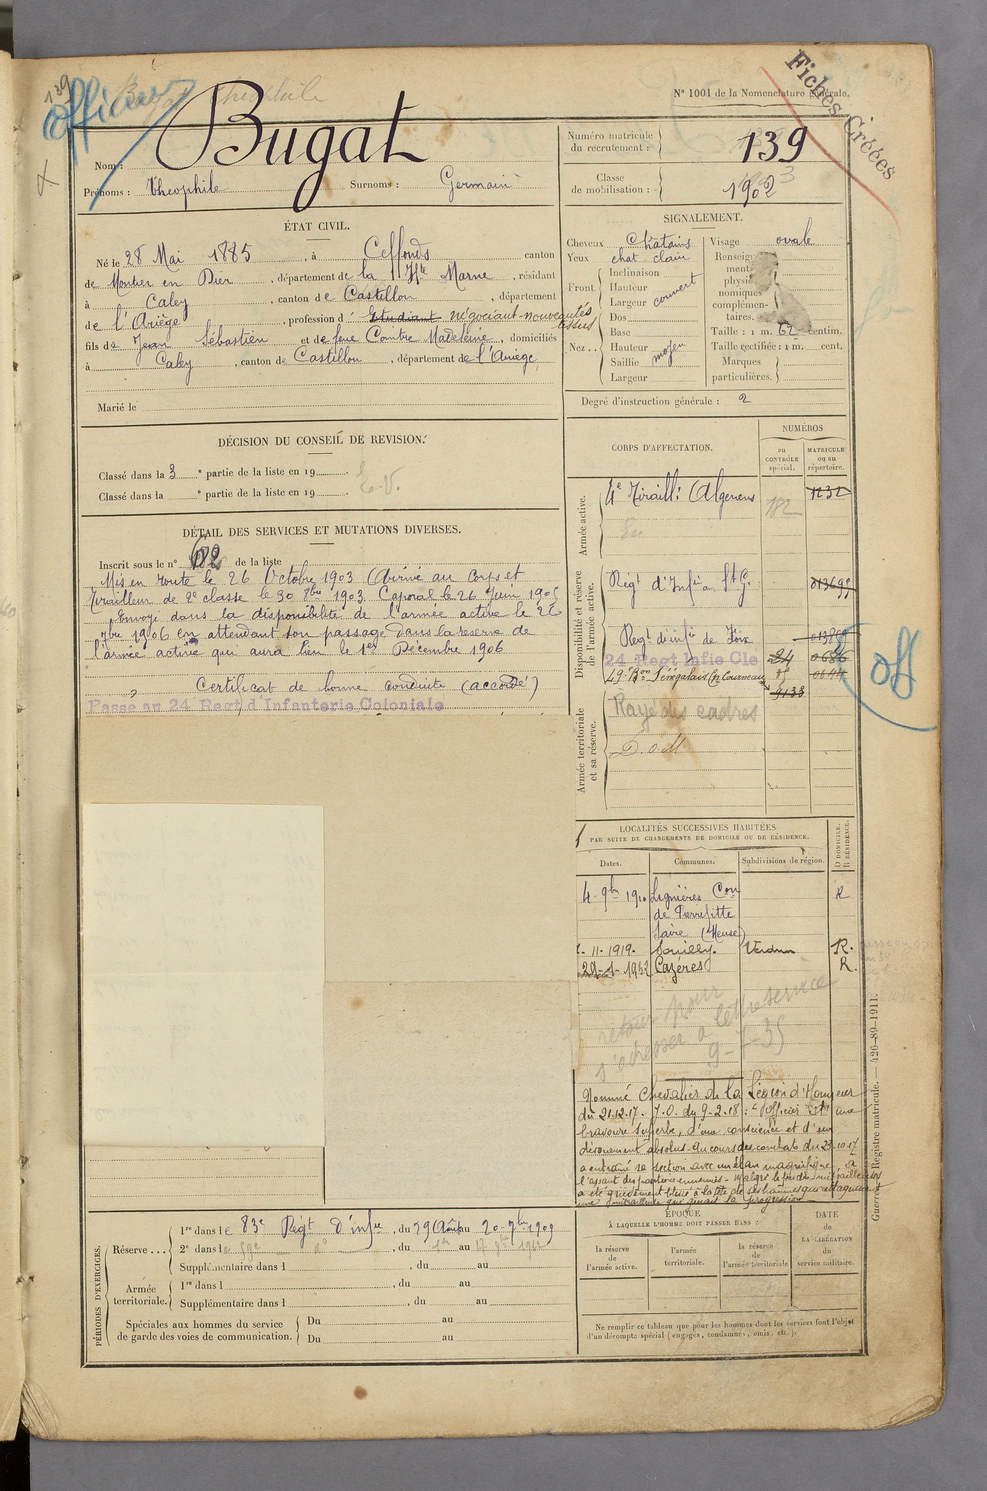 139
officier
Fiches Créées
N° 1001 de la Nomenclature générale.
Bugat
Nom :
Prénoms : Théophile Surnoms : Germain
Numéro matricule du recrutement : 139
Classe de mobilisation : 1902
ÉTAT CIVIL.
Né le 28 Mai 1885, à Ceffonds canton
de Montier en Der, département de la Hte Marne, résidant
à Caley, canton de Castillon, département
de l'Ariège, profession d'étudiant négociant-nouveautés tissus
fils de Jean Sébastien et de feue Comtre Madeleine, domiciliés
à Caley, canton de Castillon, département de l'Ariège,
Marié le
SIGNALEMENT.
Cheveux Chatains
Yeux chat clair
Front. Inclinaison
Hauteur
Largeur couvert
Nez. Dos
Base
Hauteur moyen
Saillie
Largeur
Visage ovale
Renseignements physionomiques complémentaires.
Taille : 1 m. 62 centim.
Taille rectifiée : 1 m. cent.
Marques particulières.
Degré d'instruction générale : 2
DÉCISION DU CONSEIL DE REVISION.
Classé dans la 3e partie de la liste en 19
Classé dans la e partie de la liste en 19
E.V.
DÉTAIL DES SERVICES ET MUTATIONS DIVERSES.
Inscrit sous le n° de la liste
Mis en route le 26 Octobre 1903 Arrivé au Corps et
Tirailleur de 2e classe le 30 8bre 1903. Caporal le 26 Juin 1905
Envoyé dans la disponibilité de l'armée active le 26
7bre 1906 en attendant son passage dans la réserve de
l'armée active qui aura lieu le 1er Décembre 1906
Certificat de bonne conduite (accordé)
Passé au 24 Regt d'Infanterie Coloniale
CORPS D'AFFECTATION.
NUMÉROS
au CONTRÔLE spécial.
MATRICULE ou au répertoire.
Armée active.
4e Tiraill: Algeriens 182 1232
Disponibilité et réserve de l'armée active.
Regt d'Infie a St G. 013699
Regt d'Infie de Foix
24 Regt Infie Cle 24 0686
49e Bon Sénégalais (Cp Courneau) 0644
4133
off
Armée territoriale et sa réserve.
Rayé des cadres
D.o.M
LOCALITÉS SUCCESSIVES HABITÉES
PAR SUITE DE CHANGEMENTS DE DOMICILE OU DE RÉSIDENCE.
Dates. Communes. Subdivisions de région. D DOMICILE. R RÉSIDENCE.
4-9bre 1910 Lignières Con de Pierrefitte s/aire (Meuse) R
11.1919. Souilly. Verdun R.
Cazères R.
retour pour
s'adresser à lettre service
Nommé Chevalier de la Légion d'Honneur
du 21.12.17. J.O. du 9-2-18 : "officier d'une
bravoure superbe, d'une conscience et d'un
dévouement absolus. Au cours des combats du 23.10.17
a entraîné sa section avec un élan magnifique à
l'assaut des positions ennemies - malgré le feu des mitrailleuses
a été grièvement blessé à la tête de ses hommes
une mitrailleuse qui gênait la progression
PÉRIODES D'EXERCICES.
Réserve... 1re dans le 83e Régt d'infie, du 29 Août au 20-7bre 1909
2e dans le 59e do, du 1er au 17 9bre
Supplémentaire dans l , du au
Armée territoriale. 1re dans l , du au
Supplémentaire dans l , du au
Spéciales aux hommes du service de garde des voies de communication. Du au
Du au
ÉPOQUE
À LAQUELLE L'HOMME DOIT PASSER DANS :
la réserve de l'armée active.
l'armée territoriale.
la réserve de l'armée territoriale
DATE de LA LIBÉRATION du service militaire.
Ne remplir ce tableau que pour les hommes dont les services font l'objet
d'un décompte spécial (engagés, condamnés, omis, etc.).
Guerre. Registre matricule. — 426-89-1911.